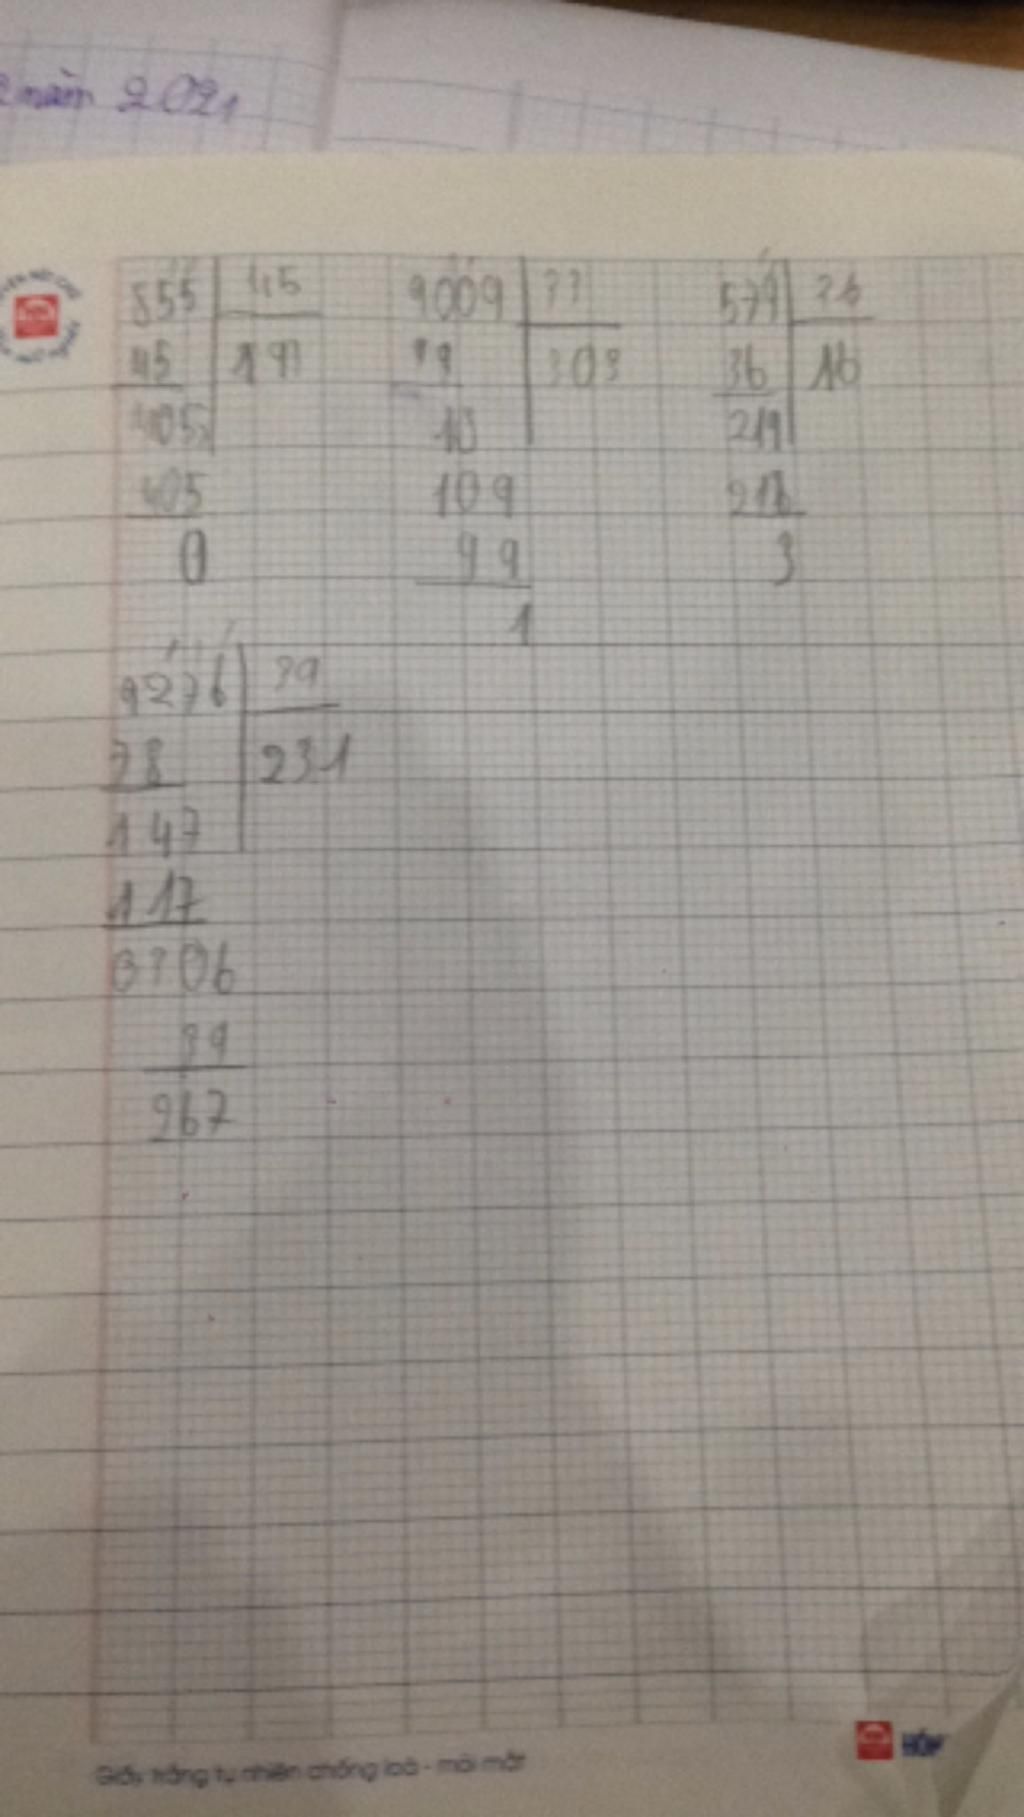 năm 2021
855 45 9009 33 579 36
45 19 99 303 36 16
405 10 219
405 109 216
0 99 3
1
9276 39
78 231
147
117
0306
39
267
Giấy trắng tự nhiên chống loá - mỏi mắt